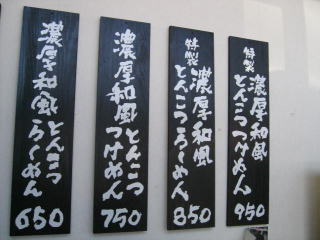 濃厚和風
とんこつ
らーめん
650
濃厚和風
とんこつ
つけめん
750
特製
濃厚和風
とんこつらーめん
850
特製
濃厚和風
とんこつつけめん
950